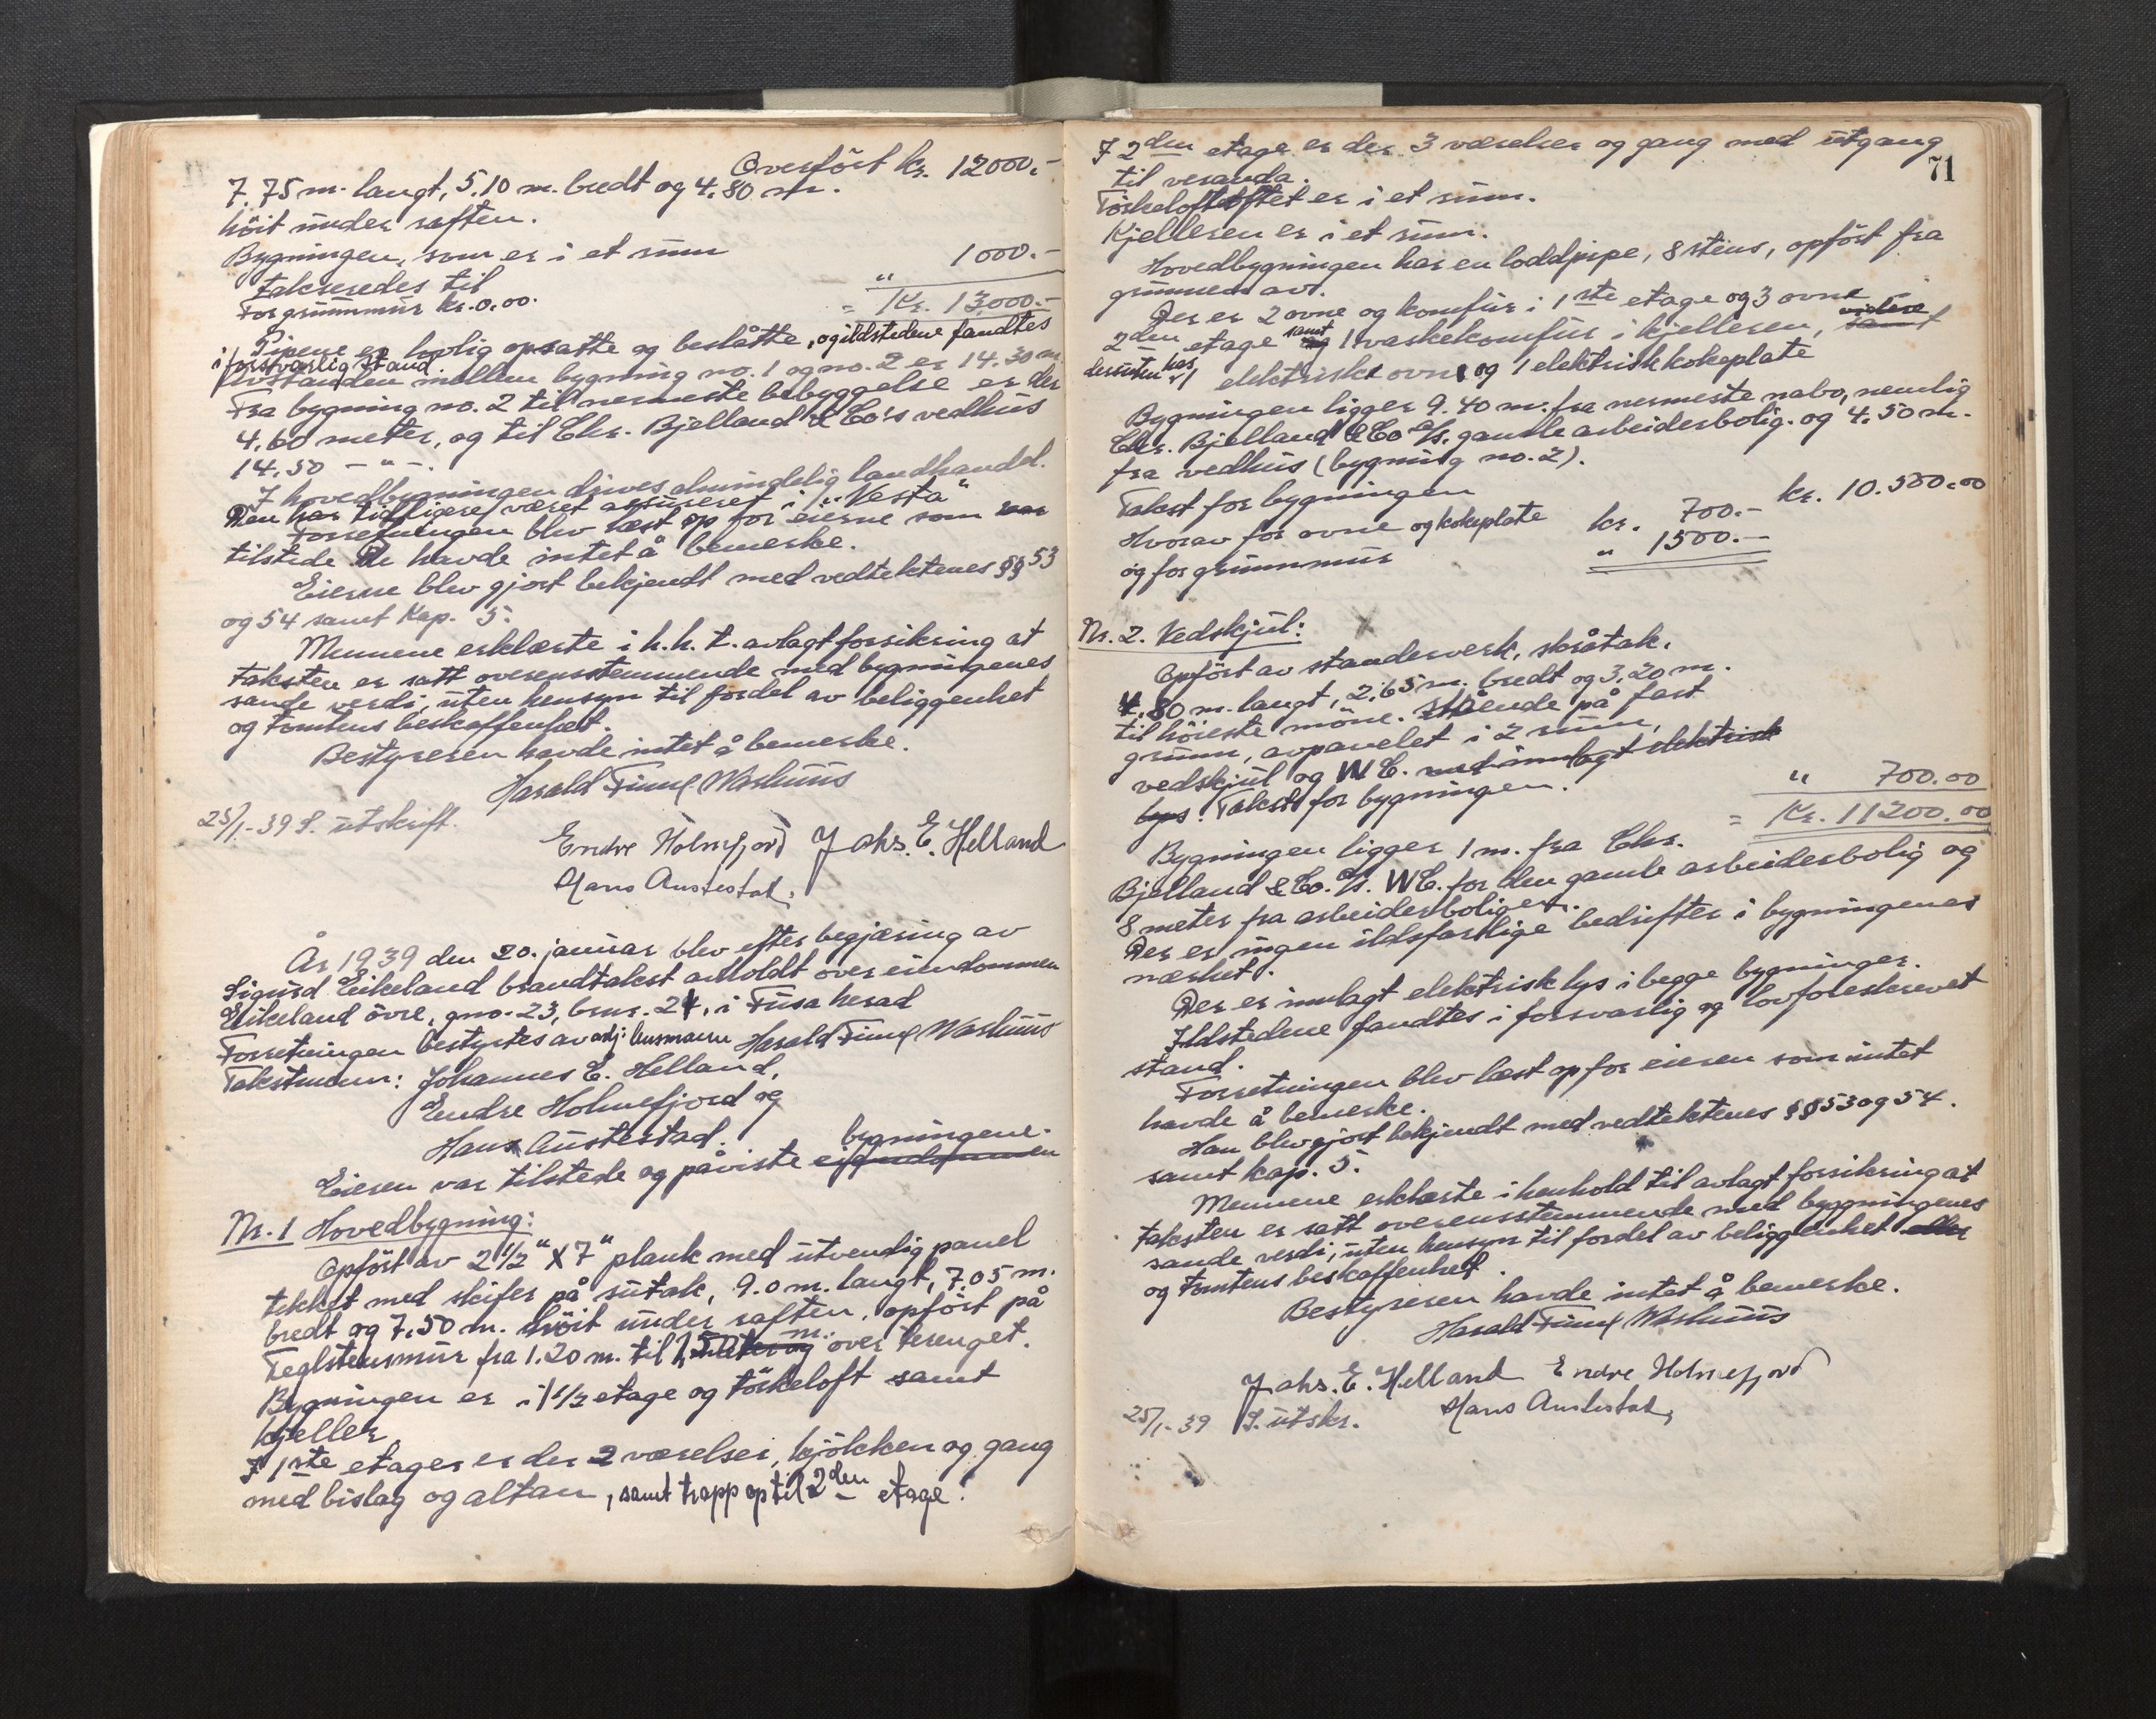 Overført kr. 12000.-
7.75 m. langt, 5.10 m. bredt og 4.80 m.
höit under raften.
Bygningen, som er i et rum
takseredes til " 1000.-
For grunnmur kr. 0.00. = Kr. 13000.-
Pipene er lovlig opsatte og beslåtte, og ildstedene fandtes
i forsvarlig stand.
Avstanden mellem bygning no. 1 og no. 2 er 14.30 m.
Fra bygning no. 2 til nermeste bebyggelse er der
4.60 meter, og til Chr. Bjelland & Co's vedhus
14.50 - " -.
I hovedbygningen drives almindelig landhandel.
Den har tidligere været assureret i "Vesta"
Forretningen blev læst op for eierne som var
tilstede De havde intet å bemerke.
Eierne blev gjort bekjendt med vedtektenes §§ 53
og 54 samt Kap. 5.
Mennene erklærte i h.h.t. avlagt forsikring at
taksten er satt overensstemmende med bygningenes
sande verdi, uten hensyn til fordel av beliggenhet
og tomtens beskaffenhet.
Bestyreren havde intet å bemerke.
Harald Finne Warhuus
25/1-39 S. utskrift.
Endre Holmefjord Johs. E. Helland
Hans Austestad.
År 1939 den 20. januar blev efter begjæring av
Sigurd Eikeland brandtakst avholdt over eiendommen
Eikeland övre, gno. 23, brnr. 24, i Fusa herad
Forretningen bestyrtes av adj. lensmann Harald Finne Warhuus
Takstmenn: Johannes E. Helland,
Endre Holmefjord og
Hans Austestad.
Eieren var tilstede og påviste eiendommen bygningene.
Nr. 1 Hovedbygning:
Opfört av 2 1/2" X 7" plank med utvendig panel
tekket med skifer på sutak, 9.0 m. langt, 7.05 m.
bredt og 7.50 m. höit under raften, opfört på
Teglstensmur fra 1.20 m. til m. over terenget.
Bygningen er i 1 1/2 etage og törkeloft samt
kjeller
I 1ste etager er der 2 værelser, kjökken og gang
med bislag og altan, samt trapp op til 2den etage.
71
I 2den etage er der 3 værelser og gang med utgang
til veranda.
Törkeloftloftet er i et rum.
Kjelleren er i et rum.
Hovedbygningen har en loddpipe, 8 stens, opfört fra
grunnen av.
Der er 2 ovne og komfur i 1ste etage og 3 ovne i
2den etage samt og 1 vaskekomfur i kjelleren, samt videre
desuten has 1 elektrisk ovn og 1 elektrisk kokeplate
Bygningen ligger 9.40 m. fra nermeste nabo, nemlig
Chr. Bjelland & Co A/s. gamle arbeiderbolig. og 4.50 m.
fra vedhus (bygning no. 2).
Takst for bygningen kr. 10.500.00
Hvorav for ovne og kokeplate kr. 700.-
og for grunnmur " 1500.-
Nr. 2. Vedskjul:
Opfört av standerverk, skråtak,
4.80 m. langt, 2.65 m. bredt og 3.20 m.
til höieste möne. Stående på fast
grunn, avpanelet i 2 rum,
vedskjul og W.C. med innlagt elektrisk
lys. Takst for bygningen. " 700.00
= Kr. 11200.00
Bygningen ligger 1 m. fra Chr.
Bjelland & Co. A/s. W.C. for den gamle arbeiderbolig og
8 meter fra arbeiderboligen.
Der er ingen ildsfarlige bedrifter i bygningenes
nærhet.
Der er innlagt elektrisk lys i begge bygninger.
Ildstedene fandtes i forsvarlig og lovforeskrevet
stand.
Forretningen blev læst op for eieren som intet
havde å bemerke.
Han blev gjort bekjendt med vedtektenes §§ 53 og 54.
samt kap. 5.
Mennene erklærte i henhold til avlagt forsikring at
taksten er satt overensstemmende med bygningenes
sande verdi, uten hensyn til fordel av beliggenhet eller
og tomtens beskaffenhet.
Bestyreren havde intet å bemerke.
Harald Finne Warhuus
Johs. E. Helland Endre Holmefjord
25/1-39 S. utskr. Hans Austestad,